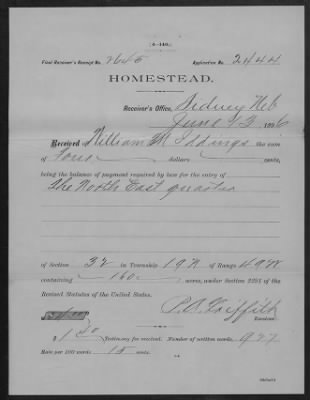 (4—140.)
Final Receiver's Receipt No. 2645 Application No. 2444
HOMESTEAD.
Receiver's Office, Sidney Neb
June 13, 1896
Received William M Iddings the sum
of Four dollars cents,
being the balance of payment required by law for the entry of
The North East quarter
of Section 32 in Township 19N of Range 49W
containing 160 acres, under Section 2291 of the
Revised Statutes of the United States.
Griffith
Receiver.
$ 1 40 Testimony fee received. Number of written words, 927
Rate per 100 words 15 cents.